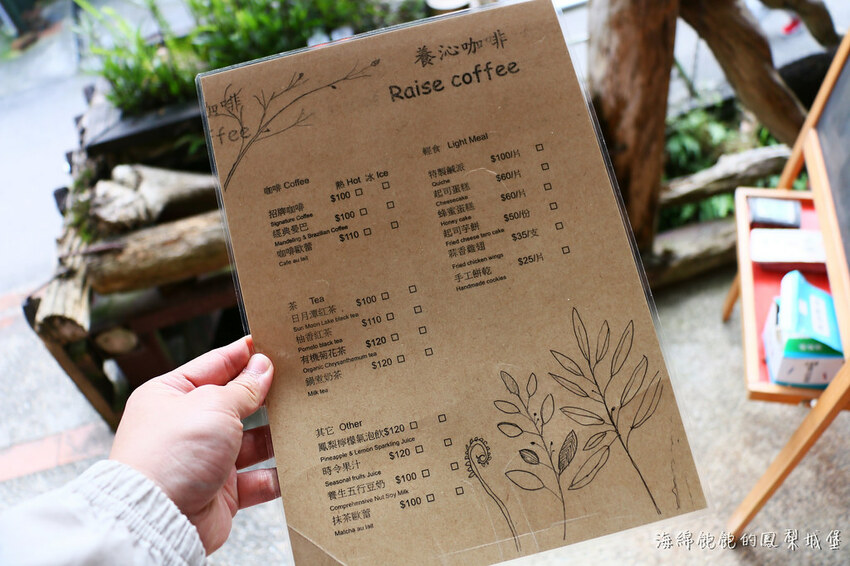 養沁咖啡
Raise coffee
咖啡
ffee
咖啡 Coffee 熱 Hot 冰 Ice
招牌咖啡 $100
Signature Coffee
經典曼巴 $100
Mandeling & Brazilian Coffee
咖啡歐蕾 $110
Cafe au lait
茶 Tea
日月潭紅茶 $100
Sun Moon Lake black tea
柚香紅茶 $110
Pomelo black tea
有機菊花茶 $120
Organic Chrysanthemum tea
鍋煮奶茶 $120
Milk tea
其它 Other
鳳梨檸檬氣泡飲 $120
Pineapple & Lemon Sparkling Juice
時令果汁 $120
Seasonal fruits Juice
養生五行豆奶 $100
Comprehensive Nut Soy Milk
抹茶歐蕾 $100
Matcha au lait
輕食 Light Meal
特製鹹派 $100/片
Quiche
起司蛋糕 $60/片
Cheesecake
蜂蜜蛋糕 $60/片
Honey cake
起司芋餅 $50/份
Fried cheese taro cake
蒜香雞翅 $35/支
Fried chicken wings
手工餅乾 $25/片
Handmade cookies
海綿飽飽的鳳梨城堡